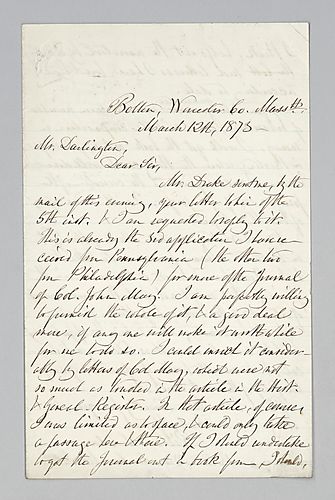 Bolton, Worcester Co. Masstts.
March 12th, 1873 –
Mr. Darlington,
Dear Sir,
Mr. Drake sent me, by the
mail of this evening, your letter to him of the
5th inst. & I am requested to reply to it.
This is already the 3rd application I have re
ceived from Pennsylvania (the other two
from Philadelphia) for more of the Journal
of Col. John May. I am perfectly willing
to furnish the whole of it, & a good deal
more, if any one will make it worth while
for me to do so. I could enrich it consider-
ably by letters of Col May, which were not
so much as touched in the article in the Hist.
& Geneal. Register. In that article, of course,
I was limited as to space, & could only take
a passage here & there. If I should undertake
to get the Journal out in book form I should,